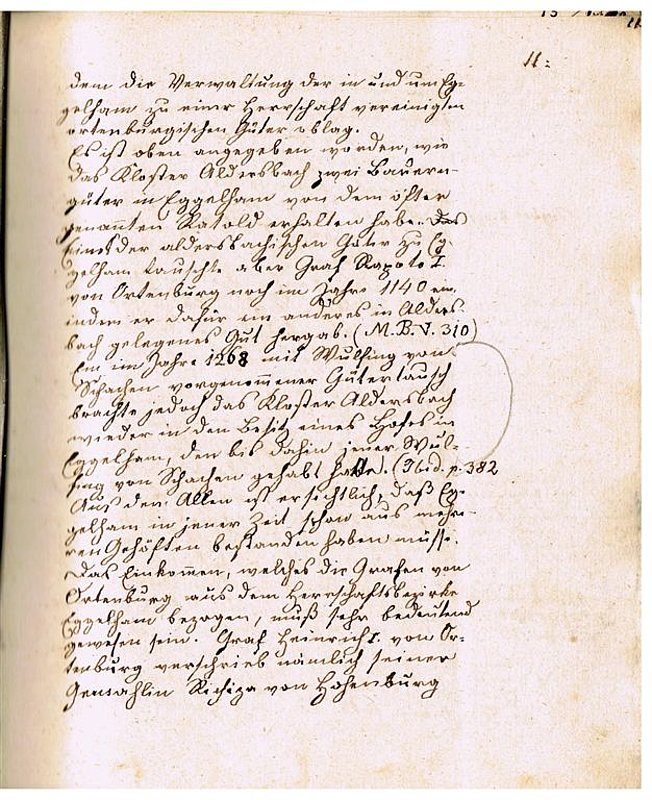 11:
dem die Verwaltung der in und um Eg-
gelham zu einer Herrschaft vereinigten
ortenburgischen Güter oblag.
Es ist oben angegeben worden, wie
das Kloster Aldersbach zwei Bauern-
güter in Eggelham von dem öfter
genannten Ratold erhalten habe.
Eines der aldersbachischen Güter zu Eg-
gelham tauschte aber Graf Rapoto I.
von Ortenburg noch im Jahre 1140 ein,
indem er dafür ein anderes in Alders-
bach gelegenes Gut hergab. (M.B.V. 310)
Ein im Jahre 1268 mit Wulfing von
Schachen vorgenommener Gütertausch
brachte jedoch das Kloster Aldersbach
wieder in den Besitz eines Hofes in
Eggelham, den bis dahin jener Wul-
fing von Schachen gehabt hatte. (Ibid. p. 382
Aus den Allen ist ersichtlich, daß Eg-
gelham in jener Zeit schon aus mehre-
ren Gehöften bestanden haben müsse.
Das Einkommen, welches die Grafen von
Ortenburg aus dem Herrschaftsbezirke
Eggelham bezogen, muß sehr bedeutend
gewesen sein. Graf Heinrich I. von Or-
tenburg verschrieb nämlich seiner
Gemahlin Richiza von Hohenburg